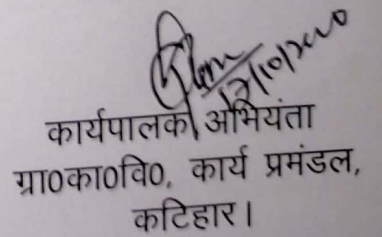 कार्यपालक अभियंता
ग्रा0का0वि0, कार्य प्रमंडल,
कटिहार।